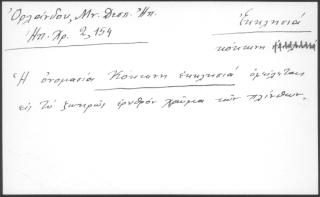 Ὀρλάνδου, Μν. Δεσπ. Ἠπ.
Ἠπ. Χρ. 2, 154
Ἐκκλησιά
κόκκινη
Ἡ ὀνομασία Κόκκινη ἐκκλησιά ὀφείλεται
εἰς τό ζωηρῶς ἐρυθρόν χρῶμα τῶν πλίνθων.